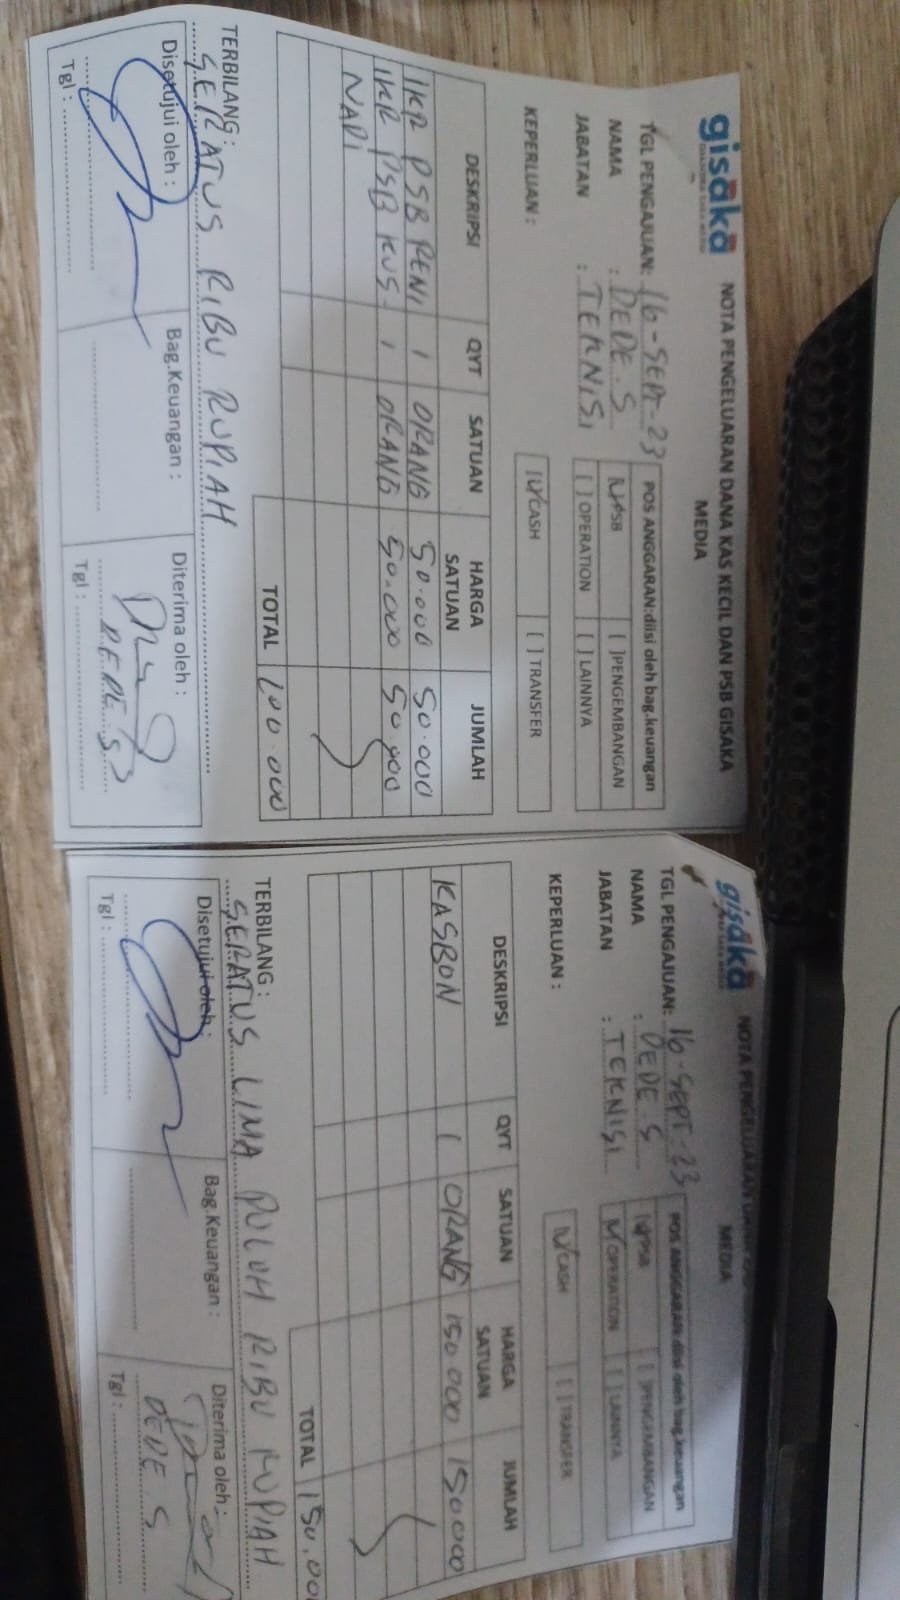 gisaka
NOTA PENGELUARAN DANA KAS KECIL DAN PSB GISAKA
MEDIA
TGL PENGAJUAN: 16-SEPT-23
NAMA : DEDE.S
JABATAN : TEKNISI
POS ANGGARAN:diisi oleh bag.keuangan
[✓] PSB [ ]PENGEMBANGAN
[ ] OPERATION [ ] LAINNYA
KEPERLUAN :
[✓] CASH [ ] TRANSFER
DESKRIPSI QYT SATUAN HARGA SATUAN JUMLAH
IKR PSB RENI 1 ORANG 50.000 50.000
IKR PSB KUS 1 ORANG 50.000 50.000
NADI
TOTAL 100.000
TERBILANG :
SERATUS RIBU RUPIAH
Disetujui oleh : Bag.Keuangan : Diterima oleh :
DEDE S
Tgl : Tgl :
gisaka
NOTA PENGELUARAN
MEDIA
TGL PENGAJUAN: 16-SEPT 23
NAMA : DEDE.S
JABATAN : TEKNISI
POS ANGGARAN:diisi oleh bag.keuangan
PSB [ ]PENGEMBANGAN
OPERATION [ ] LAINNYA
KEPERLUAN :
[✓] CASH [ ] TRANSFER
DESKRIPSI QYT SATUAN HARGA SATUAN JUMLAH
KASBON 1 ORANG 150.000 150.000
TOTAL 150.00
TERBILANG :
SERATUS LIMA PULUH RIBU RUPIAH
Disetujui oleh : Bag.Keuangan : Diterima oleh :
DEDE S
Tgl : Tgl :